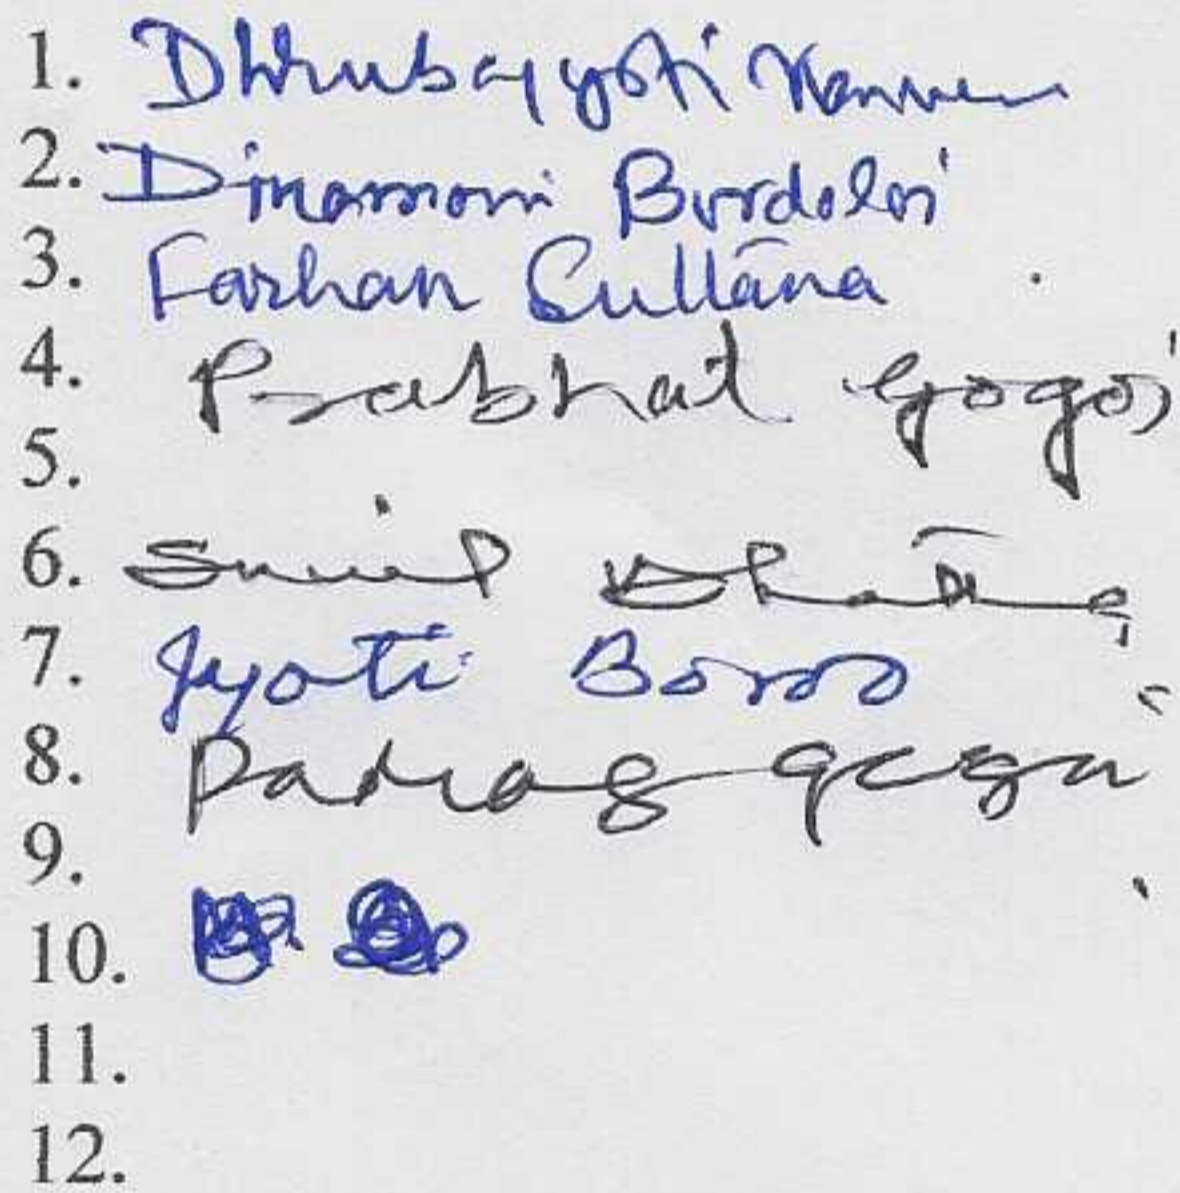 1. Dhrubajyoti
2. Dinamoni Bordoloi
3. Farhan Sultana
4. Prabhat Gogoi
5.
6. Sunil
7. Jyoti Boro
8. Parag Gogoi
9.
10.
11.
12.